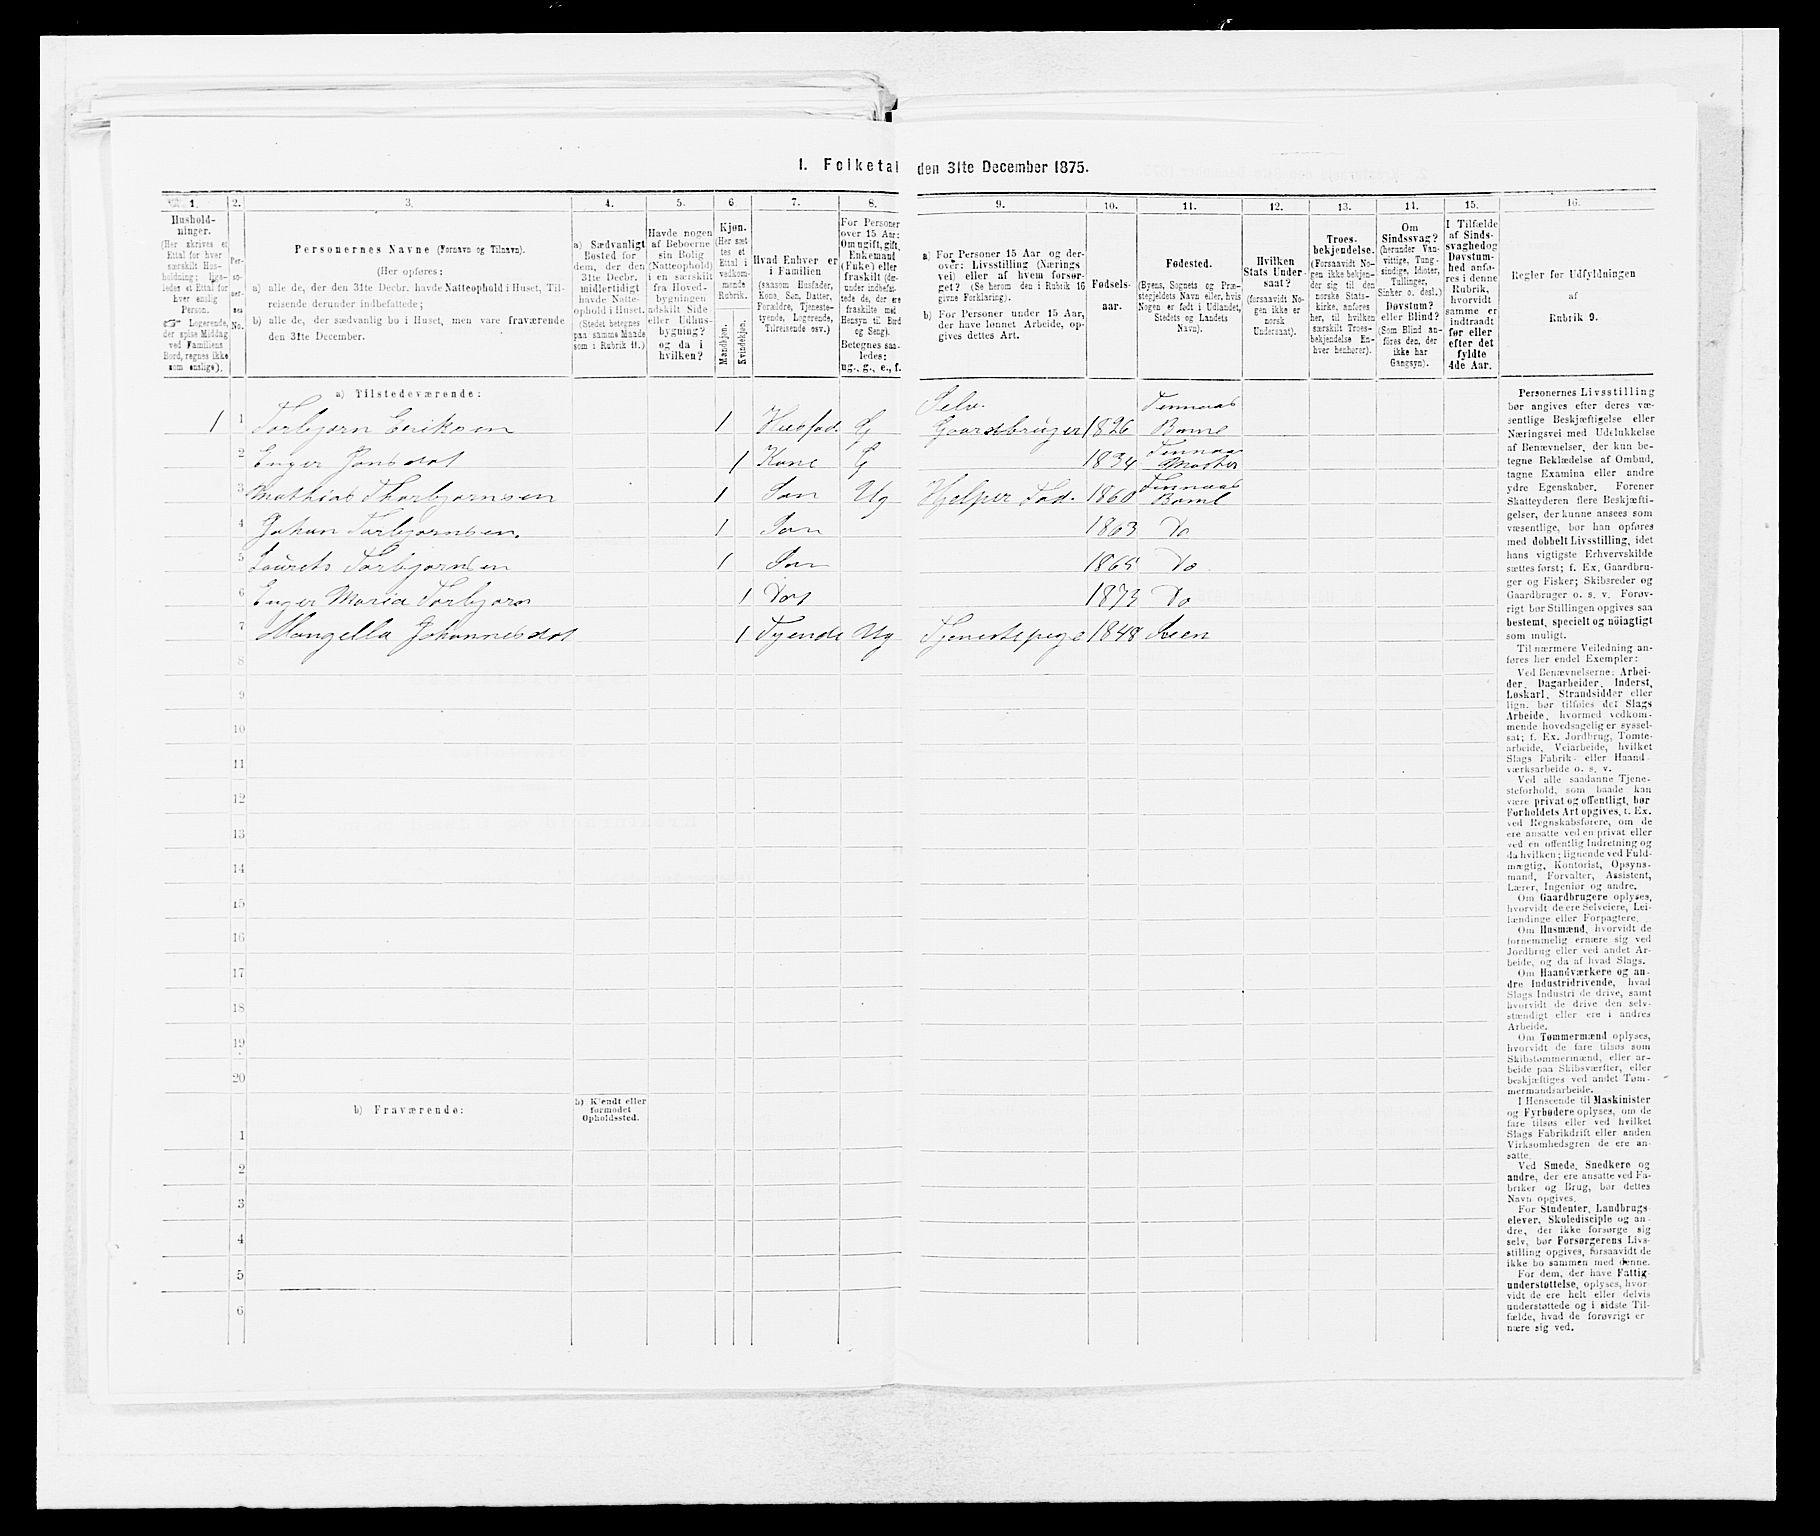 I. Folketal den 31te December 1875.
1. 2. 3. 4. 5. 6 7. 8. 9. 10. 11. 12. 13. 14. 15. 16.
Hushold-
ninger.
(Her skrives et
Ettal for hver
særskilt Hus-
holdning; lige-
ledes et Ettal for
hver enslig
Person.
☞ Logerende,
der spise Middag
ved Familiens
Bord, regnes ikke
som enslige).
Per-
so-
ner-
nes
No.
Personernes Navne (Fornavn og Tilnavn).
(Her opføres:
a) alle de, der den 31te Decbr. havde Natteophold i Huset, Til-
reisende derunder indbefattede;
b) alle de, der sædvanlig bo i Huset, men vare fraværende
den 31te December.
a) Sædvanligt
Bosted for
dem, der den
31te Decbr.
midlertidigt
havde Natte-
ophold i Huset.
(Stedet betegnes
paa samme Maade
som i Rubrik 11.)
Havde nogen
af Beboerne
sin Bolig
(Natteophold)
i en særskilt
fra Hoved-
bygningen
adskilt Side
eller Udhus-
bygning?
og da i
hvilken?
Kjøn.
(Her sæt
tes et
Ettal i
vedkom-
mende
Rubrik.
Mandkjøn.
Kvindekjøn.
Hvad Enhver er
i Familien
(saasom Husfader,
Kone, Søn, Datter,
Forældre, Tjeneste-
tyende, Logerende,
Tilreisende osv.)
For Personer
over 15 Aar:
Om ugift, gift,
Enkemand
(Enke) eller
fraskilt (de-
runder indbefat-
tede de, der ere
fraskilte med
Hensyn til Bord
og Seng).
Betegnes saa-
ledes:
ug., g., e., f.
a) For Personer 15 Aar og der-
over: Livsstilling (Nærings-
vei) eller af hvem forsør-
get? (Se herom den i Rubrik 16
givne Forklaring).
b) For Personer under 15 Aar,
der have lønnet Arbeide, op-
gives dettes Art.
Fødsels-
aar.
Fødested.
(Byens, Sognets og Præ-
stegjeldets Navn eller, hvis
Nogen er født i Udlandet,
Stedets og Landets
Navn).
Hvilken
Stats Under-
saat?
(forsaavidt No-
gen ikke er
norsk
Undersaat).
Troes-
bekjendelse.
(Forsaavidt No-
gen ikke bekjen-
der sig til den
norske Stats-
kirke, anføres
her, til hvilken
særskilt Troes-
bekjendelse En-
hver henhører).
Om
Sindssvag?
(herunder Van-
vittige, Tung-
sindige, Idioter,
Tullinger,
Sinker o. desl.)
Døvstum?
eller Blind?
(Som Blind an-
føres den, der
ikke har
Gangsyn).
I Tilfælde
af Sinds-
svaghed og
Døvstum-
hed anfø-
res i denne
Rubrik,
hvorvidt
samme er
indtraadt
før eller
efter det
fyldte
4de Aar.
Regler for Udfyldningen
af
Rubrik 9.
a) Tilstedeværende:
1 1 Torbjørn Eriksen 1 Husfad. G Selv. Gaardbruger 1826 Finnaas Bømel
2 Enger Jonsdat 1 Kone G 1834 Finnaas Moster
3 Mathias Thorbjørnsen 1 Søn Ug Hjelper Fad. 1860 Finnaas Bømel
4 Johan Torbjørnsen. 1 Søn 1863 Do
5 Laurets Torbjørnsen 1 Søn 1865 Do
6 Enger Maria Torbjørn 1 Dat 1873 Do
7 Mangella Johannesdat 1 Tyende Ug Tjenestepige 1848 Skeen
8
9
10
11
12
13
14
15
16
17
18
19
20
b) Fraværende:
b) Kjendt eller
formodet
Opholdssted.
1
2
3
4
5
6
Personernes Livsstilling
bør angives efter deres væ-
sentlige Beskjæftigelse eller
Næringsvei med Udelukkelse
af Benævnelser, der kun be-
tegne Beklædelse af Ombud,
tagne Examina eller andre
ydre Egenskaber. Forener
Skatteyderen flere Beskjæfti-
gelser, der kunne ansees som
væsentlige, bør han opføres
med dobbelt Livsstilling, idet
hans vigtigste Erhvervskilde
sættes først; f. Ex. Gaardbru-
ger og Fisker; Skibsreder og
Gaardbruger o. s. v. Forøv-
rigt bør Stillingen opgives saa
bestemt, specielt og nøiagtigt
som muligt.
Til nærmere Veiledning an-
føres her endel Exempler:
Ved Benævnelserne: Arbei-
der, Dagarbeider, Inderst,
Løskarl, Strandsidder eller
lign. bør tilføies det Slags
Arbeide, hvormed vedkom-
mende hovedsagelig er syssel-
sat; f. Ex. Jordbrug, Tomte-
arbeide, Veiarbeide, hvilket
Slags Fabrik- eller Haand-
værksarbeide o. s. v.
Ved alle saadanne Tjene-
steforhold, som baade kan
være privat og offentligt, bør
Forholdets Art opgives, t. Ex.
ved Regnskabsførere, om de
ere ansatte ved en privat eller
ved en offentlig Indretning og
da hvilken; lignende ved Fuld-
mægtig, Kontorist, Opsyns-
mand, Forvalter, Assistent,
Lærer, Ingeniør og andre.
Om Gaardbrugere oplyses,
hvorvidt de ere Selveiere, Lei-
lændinge eller Forpagtere.
Om Husmænd, hvorvidt de
fornemmelig ernære sig ved
Jordbrug eller ved andet Ar-
beide, og da af hvad Slags.
Om Haandværkere og an-
dre Industridrivende, hvad
Slags Industri de drive, samt
hvorvidt de drive den selv-
stændigt eller ere i andres
Arbeide.
Om Tømmermænd oplyses,
hvorvidt de fare tilsøs som
Skibstømmermænd, eller ar-
beide paa Skibsværfter, eller
beskjæftiges ved andet Tøm-
mermandsarbeide.
I Henseende til Maskinister
og Fyrbødere oplyses, om de
fare tilsøs eller ved hvilket
Slags Fabrikdrift eller anden
Virksomhedsgren de ere an-
satte.
Ved Smede, Snedkere og
andre, der ere ansatte ved Fa-
briker og Brug, bør dettes
Navn opgives.
For Studenter, Landbrugs-
elever, Skoledisciple og an-
dre, der ikke forsørge sig
selv, bør Forsørgerens Livs-
stilling opgives, forsaavidt de
ikke bo sammen med denne.
For dem, der have Fattig-
understøttelse, oplyses, hvor-
vidt de ere helt eller delvis
understøttede og i sidste Til-
fælde, hvad de forøvrigt er-
nære sig ved.